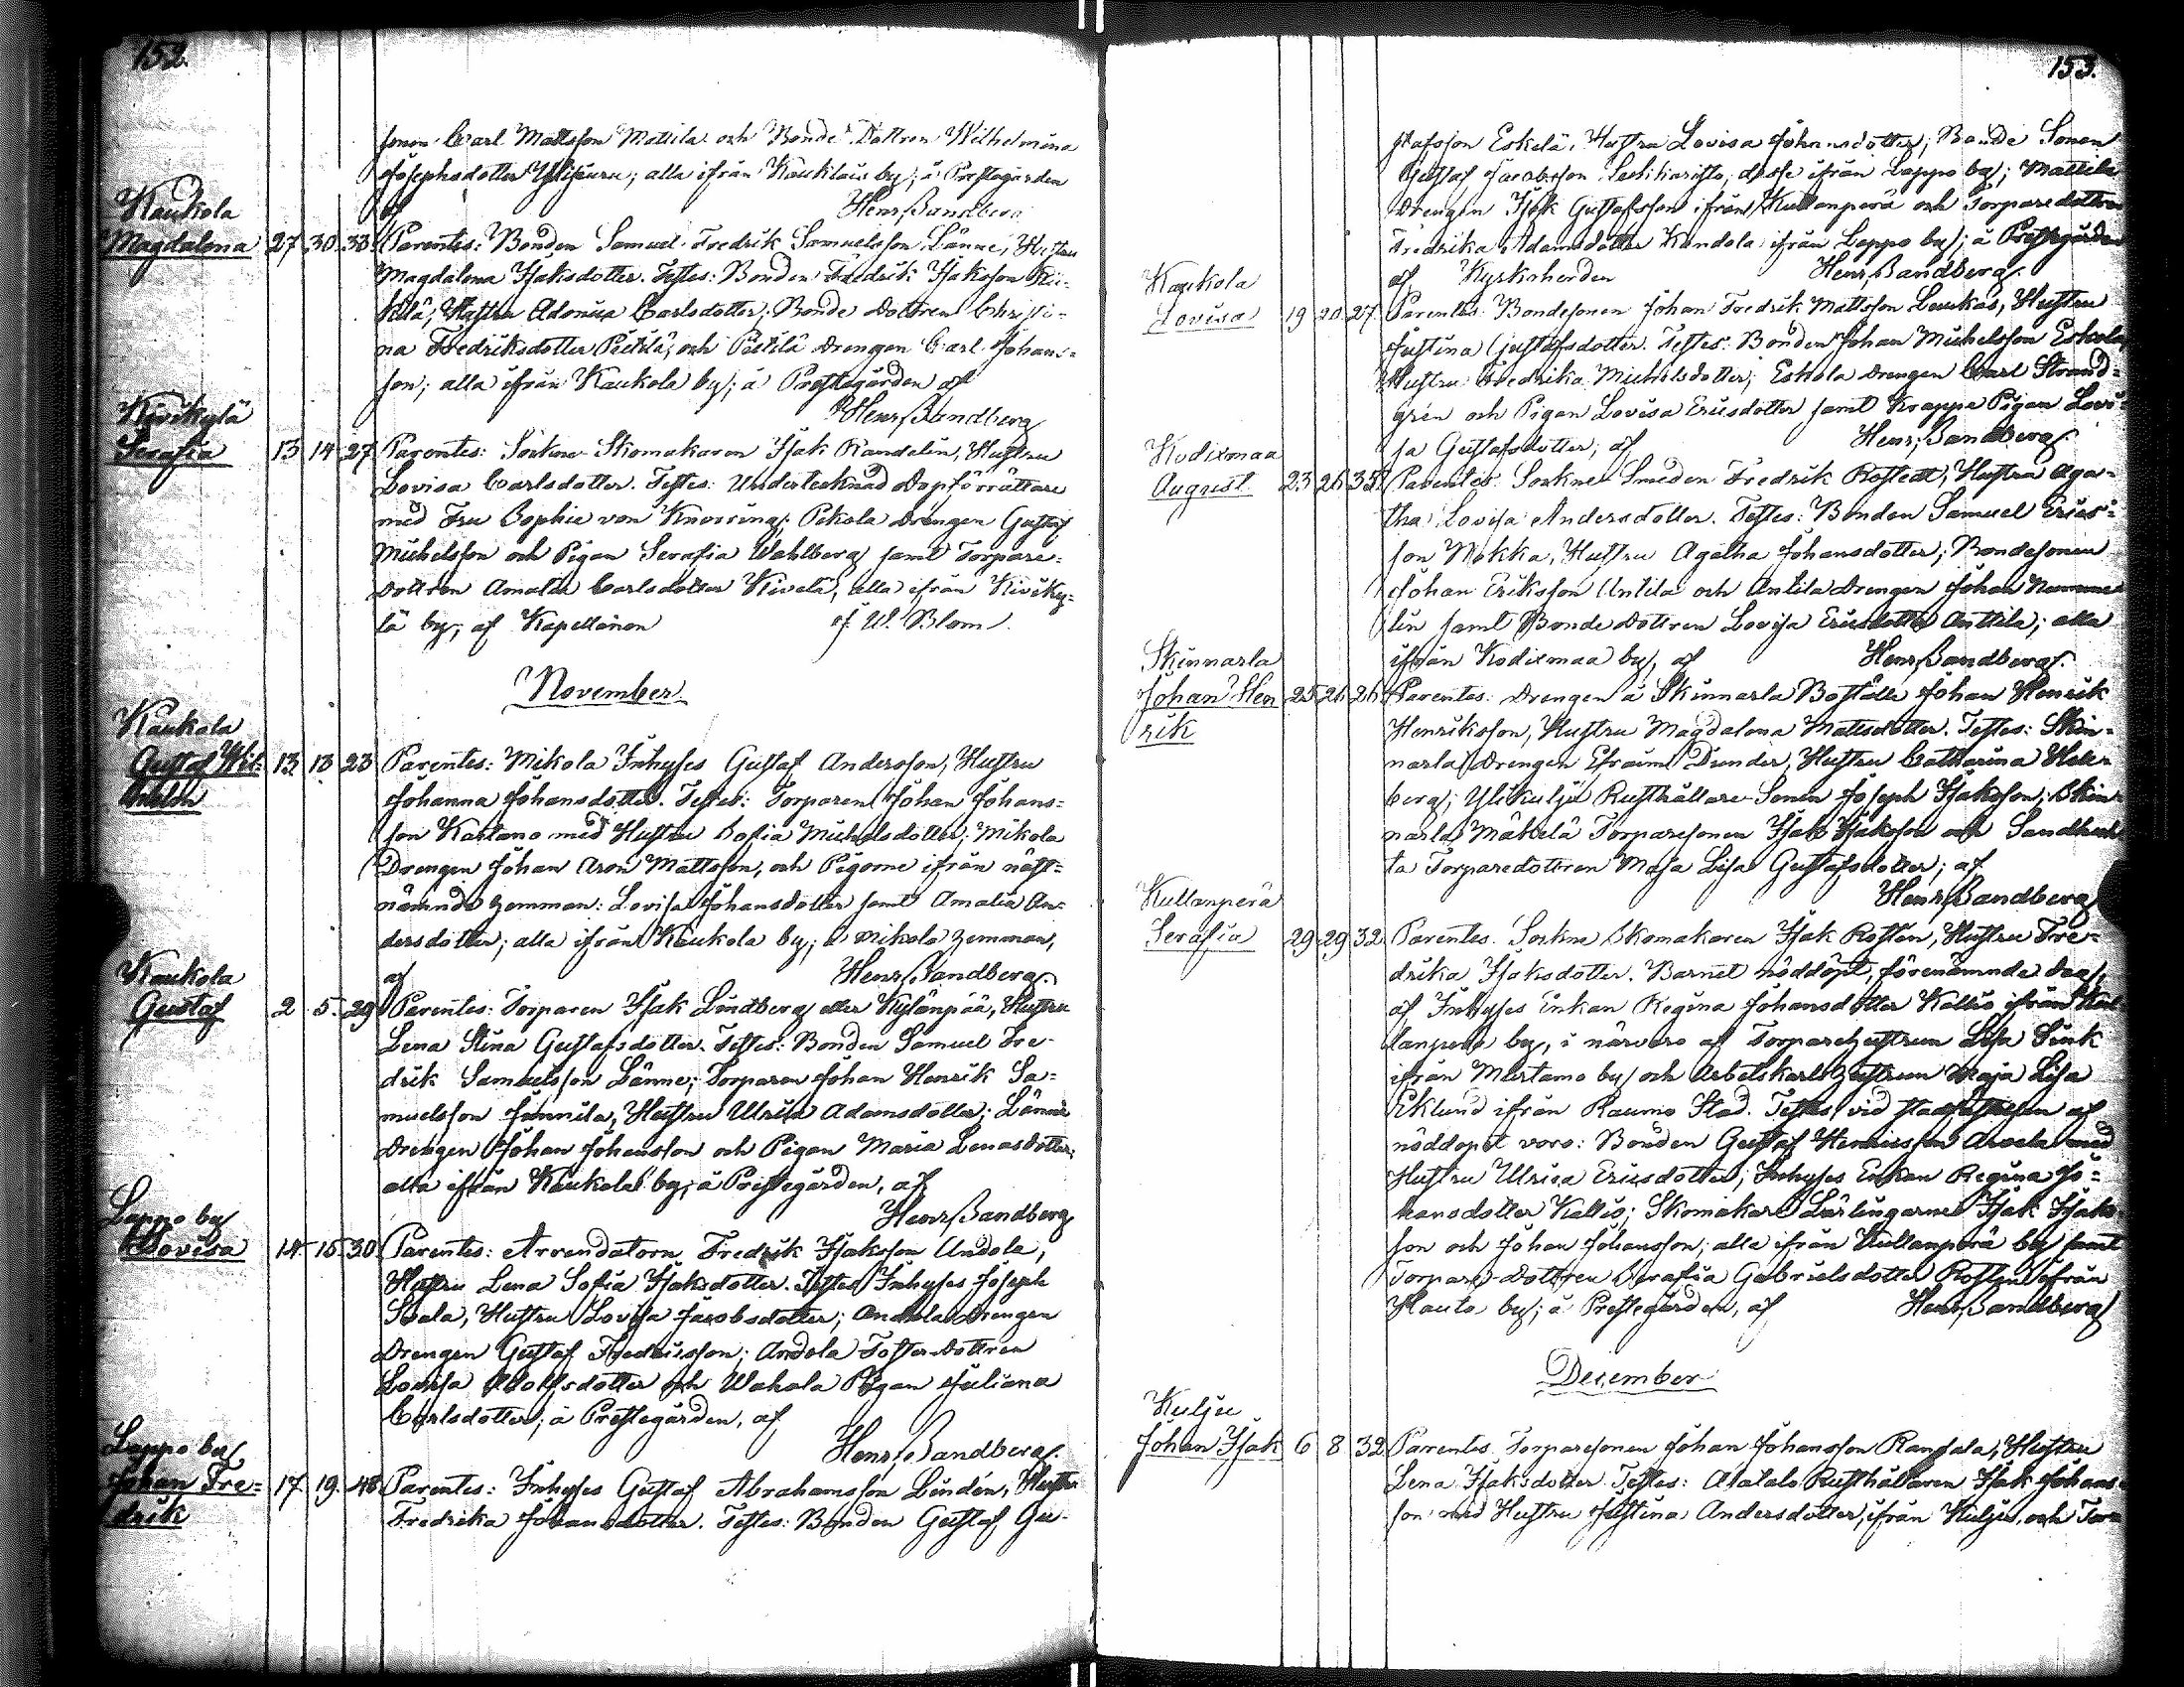 152.
sonen Carl Mattsson Mattila och Bonde Dottren Wilhelmina
Josephsdotter Ylipuru; alla ifrån Kauklais by; å Prestegården
af Henr. Sandberg
Kaukola
Magdalena 27 30 33 Parentes: Bonden Samuel Fredrik Samuelsson Länne, Hustru
Magdalena Isaksdotter. Testes: Bonden Fredrik Isaksson
Hustru Carlsdotter; Bonde Dottren Christi-
na Fredriksdotter och Drengen Carl Johans-
son; alla ifrån Kaukola by; å Prestegården af
Henr. Sandberg
Kivikylä
Serafia 13 14 27 Parentes: Sockne Skomakaren Isak Randelin, Hustru
Lovisa Carlsdotter. Testes: Undertecknad Dopförrättare
med Fru Sophie von Knorring; Pekola Drengen Gustaf
Michelsson och Pigan Serafia Wahlberg samt Torpare-
Dottren Amalia Carlsdotter Kivelä, alla ifrån Kiviky-
lä by; af Kapellanen W. Blom.
November
Kaukola
Gustaf Wil- 13 13 23 Parentes: Mikola Inhyses Gustaf Andersson, Hustru
helm Johanna Johansdotter. Testes: Torparen Johan Johans-
son Kartano med Hustru Sofia Michelsdotter; Mikola
Drengen Johan Aron Mattsson, och Pigorne ifrån näst-
nämnde hemman: Lovisa Johansdotter samt Amalia An-
dersdotter; alla ifrån Kaukola by; å Mikola hemman,
af Henr. Sandberg.
Kaukola
Gustaf 2 5 29 Parentes: Torparen Isak Lindberg eller Kylänpää, Hustru
Lena Stina Gustafsdotter. Testes: Bonden Samuel Fre-
drik Samuelsson Länne; Torparen Johan Henrik Sa-
muelsson Junnila, Hustru Ulrica Adamsdotter; Länne
Drengen Johan Johansson och Pigan Maria Lenasdotter;
alla ifrån Kaukola by; å Prestegården, af
Henr. Sandberg
Lappo by
Lovisa 14 15 30 Parentes: Arrendatorn Fredrik Isaksson Andola,
Hustru Lena Sofia Isaksdotter. Testes: Inhyses Joseph
Hustru Lovisa Jacobsdotter; Andola Drengen
Drengen Gustaf Fredriksson; Andola Foster Dottren
Lovisa Adolfsdotter och Wahala Pigan Juliana
Carlsdotter; å Prestegården, af
Henr. Sandberg.
Lappo by
Johan Fre- 17 19 48 Parentes: Inhyses Gustaf Abrahamsson Lindén, Hustru
drik Fredrika Johansdotter. Testes: Bonden Gustaf Gu-
153.
stafsson Eskelä, Hustru Lovisa Johansdotter; Bonde Sonen
Gustaf Jacobsson desse ifrån Lappo by; Mattila
Drengen Isak Gustafsson ifrån Kullanperä och Torparedottren
Fredrika Adamsdotter Kandola ifrån Lappo by; å Prestegården
af Kyrkoherden Henr. Sandberg.
Kaukola
Lovisa 19 20 27 Parentes: Bondesonen Johan Fredrik Mattsson Leukas, Hustru
Justina Gustafsdotter. Testes: Bonden Johan Michelsson Eskola
Hustru Fredrika Michelsdotter; Eskola Drengen Carl Strand-
grén och Pigan Lovisa Ericsdotter samt Krappe Pigan Lovi-
sa Gustafsdotter; af Henr. Sandberg.
Kodixmaa
August 23 26 35 Parentes: Sockne Smeden Fredrik Rostedt, Hustru Aga-
tha Lovisa Andersdotter. Testes: Bonden Samuel Erics-
son Nokka, Hustru Agatha Johansdotter; Bondesonen
Johan Eriksson Antila och Antila Drengen Johan Numme-
lin samt Bonde Dottren Lovisa Ericsdotter Anttila; alla
ifrån Kodixmaa by, af Henr. Sandberg.
Skinnarla
Johan Hen 25 26 26 Parentes: Drengen å Skinnarla Boställe Johan Henrik
rik Henriksson, Hustru Magdalena Mattsdotter. Testes: Skin-
narla Drengen Efraim Dunder, Hustru Catharina Holm-
berg; Ylikulju Rusthållare Sonen Joseph Isaksson; Skin-
narla Mäkelä Torparesonen Isak Isaksson och
ta Torparedottren Maja Lisa Gustafsdotter; af
Henr. Sandberg
Kullanperä
Serafia 29 29 32 Parentes: Sockne Skomakaren Isak Rostén, Hustru Fre-
drika Isaksdotter. Barnet nöddöpt, förenämnde dag,
af Inhyses Enkan Regina Johansdotter Kallio ifrån Kul-
lanperä by, i närvaro af Torparehustrun Lisa Sink
ifrån Mertamo by och Arbetskarlshustrun Maja Lisa
Eklund ifrån Raumo Stad. Testes vid stadfästelsen af
nöddopet voro: Bonden Gustaf Henricsson med
Hustru Ulrica Ericsdotter; Inhyses Enkan Regina Jo-
hansdotter Kallio; Skomakare Lärlingarne Isak Isaks-
son och Johan Johansson; alla ifrån Kullanperä by samt
Torpare-Dottren Serafia Gabrielsdotter Rostén ifrån
Hauta by; å Prestegården, af Henr. Sandberg
December
Kulju
Johan Isak 6 8 32 Parentes: Torparesonen Johan Johansson Rantala, Hustru
Lena Isaksdotter. Testes: Alatalo Rusthållaren Isak Johans-
son med Hustru Justina Andersdotter, ifrån Kulju, och Tor-